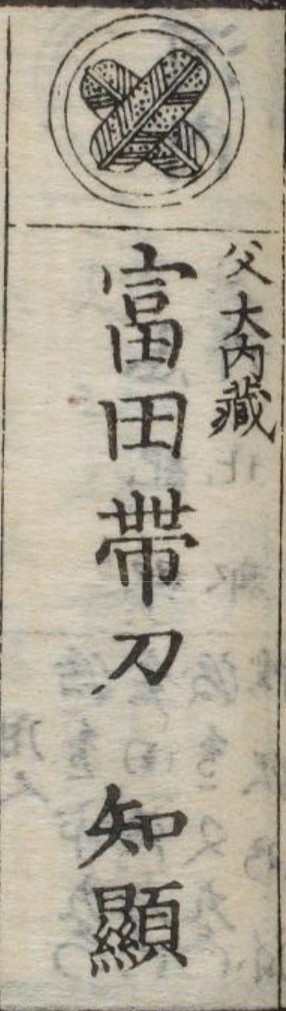 父大内藏
富田帶刀 知顯